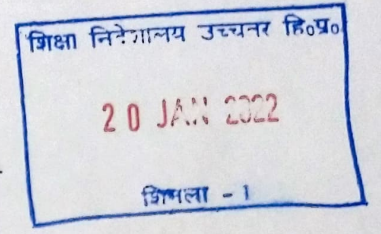 शिक्षा निदेशालय उच्चतर हि०प्र०
20 JAN 2022
शिमला - 1